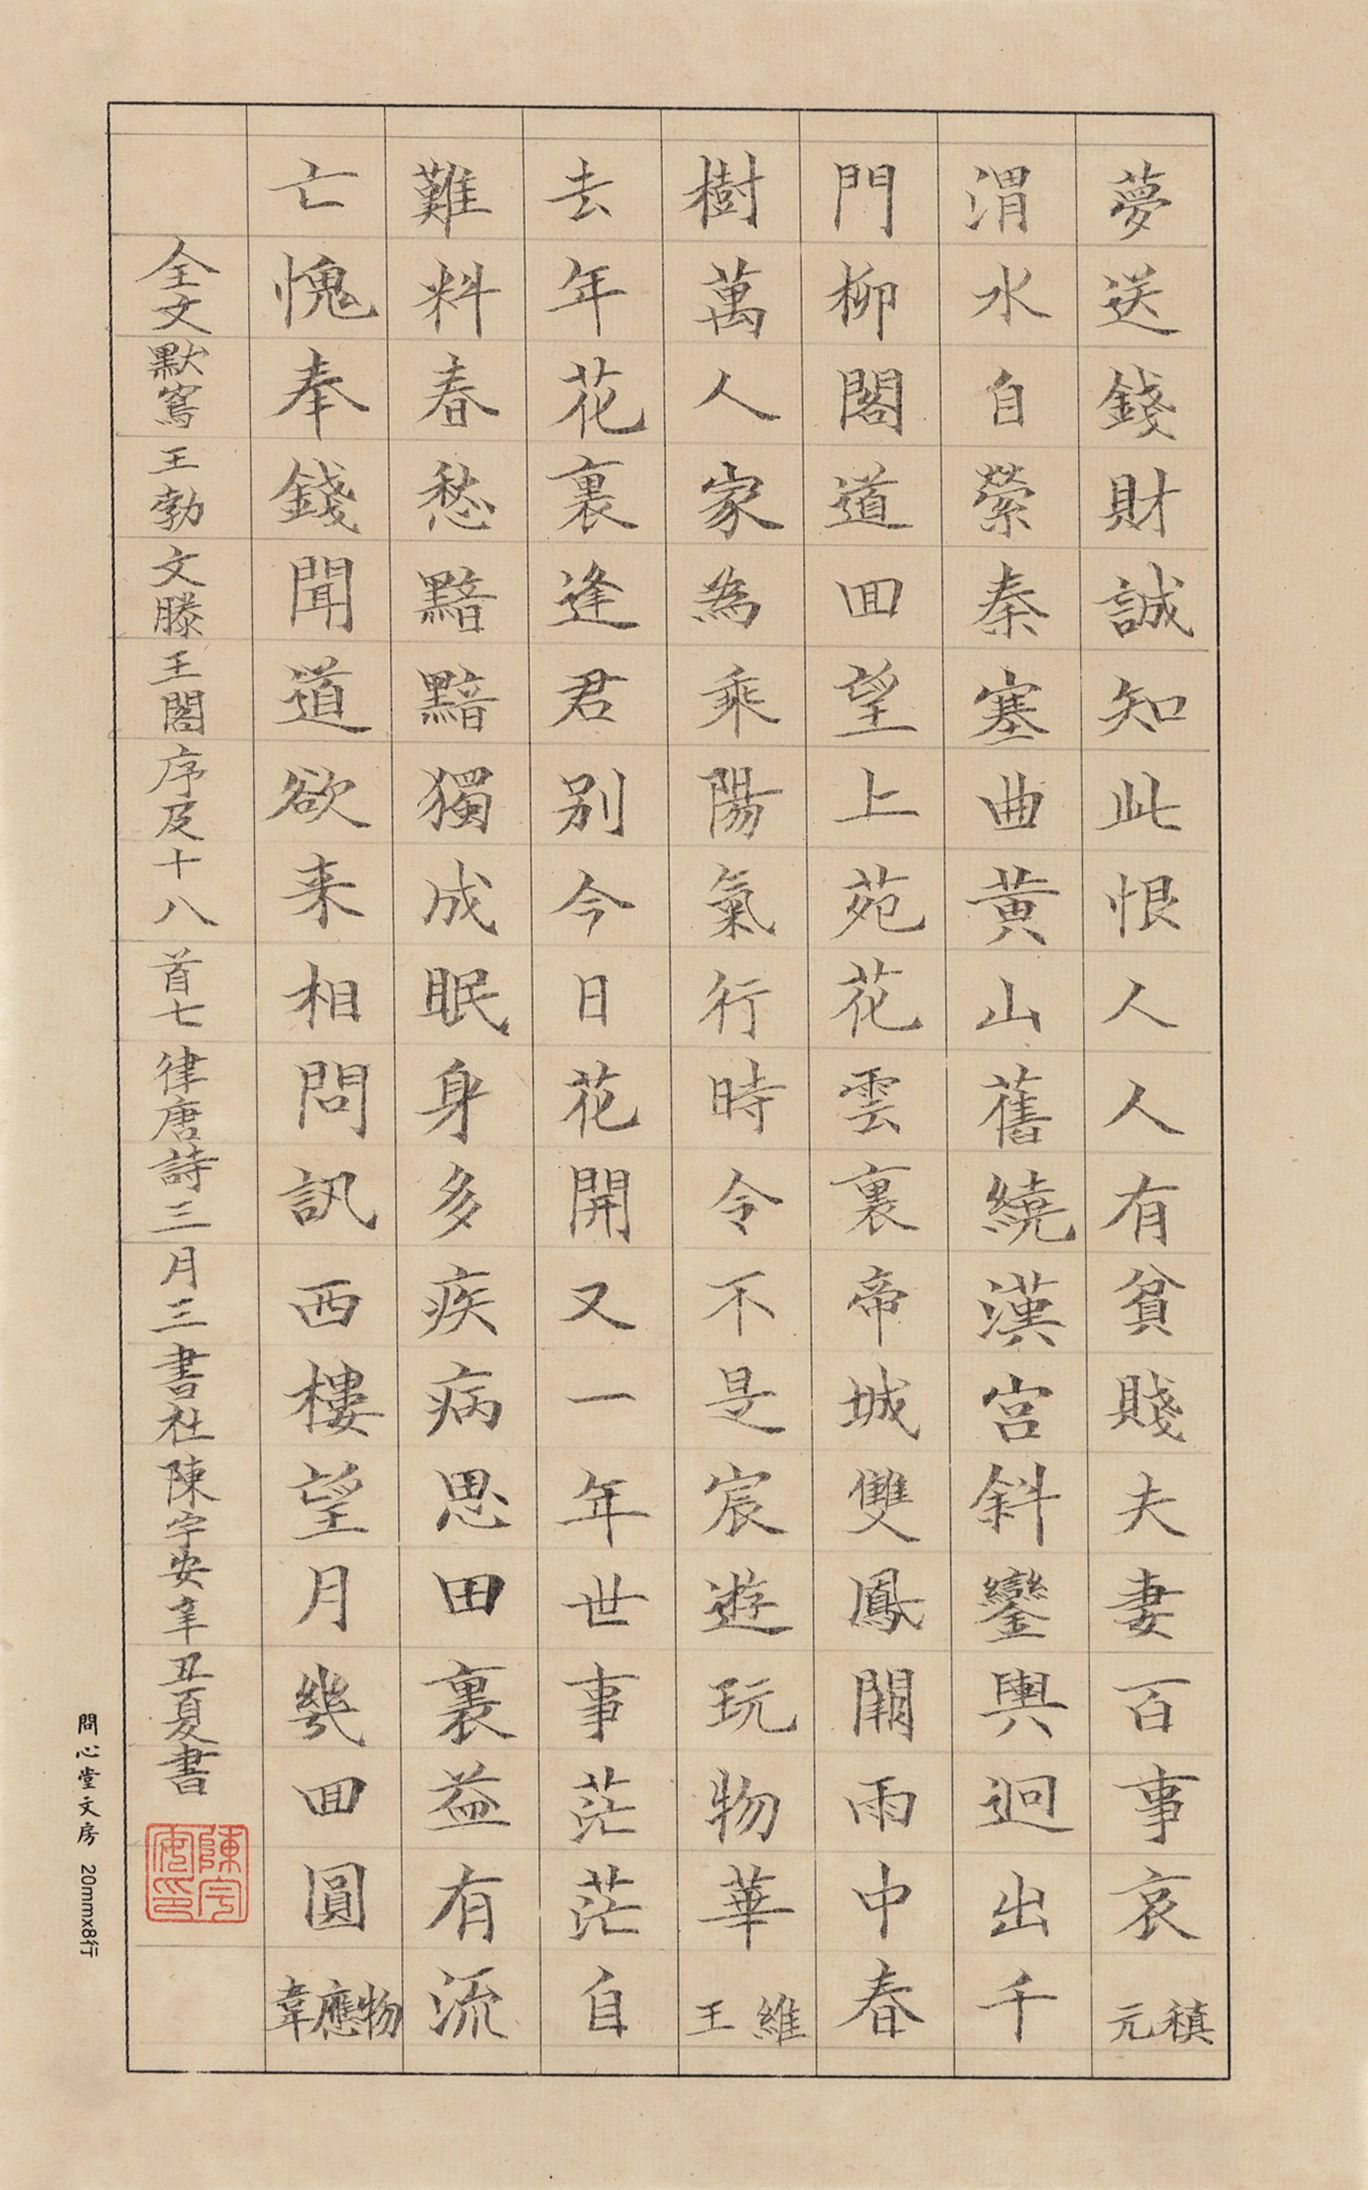 夢送錢財誠知此恨人人有貧賤夫妻百事哀元稹
渭水自縈秦塞曲黃山舊繞漢宮斜鑾輿迥出千
門柳閣道囬望上苑花雲裏帝城雙鳳闕雨中春
樹萬人家為乘陽氣行時令不是宸遊玩物華王維
去年花裏逢君別今日花開又一年世事茫茫自
難料春愁黯黯獨成眠身多疾病思田裏益有流
亡愧奉錢聞道欲来相問訊西樓望月幾囬圓韋應物
全文默寫王勃文滕王閣序及十八首七律唐詩三月三書社陳宇安辛丑夏書
陳宇安印
問心堂文房 20mmx8行